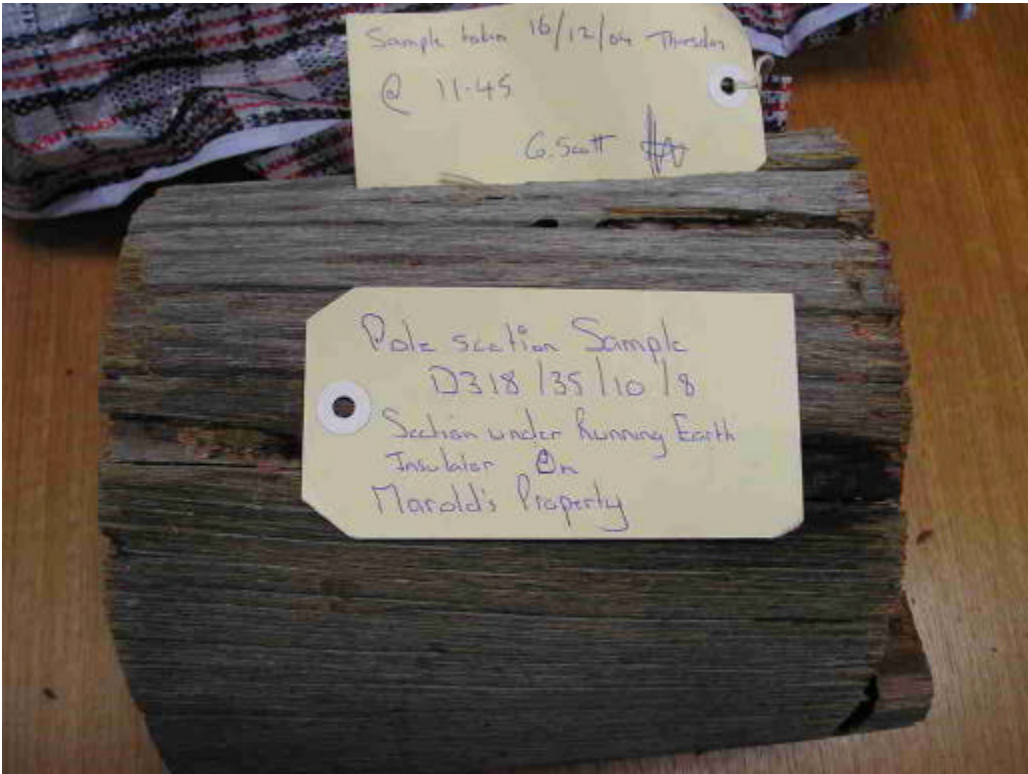 Sample taken 16/12/04 Thursday
@ 11.45
G. Scott
Pole section Sample
D318/35/10/8
Section under Running Earth
Insulator On
Marold's Property